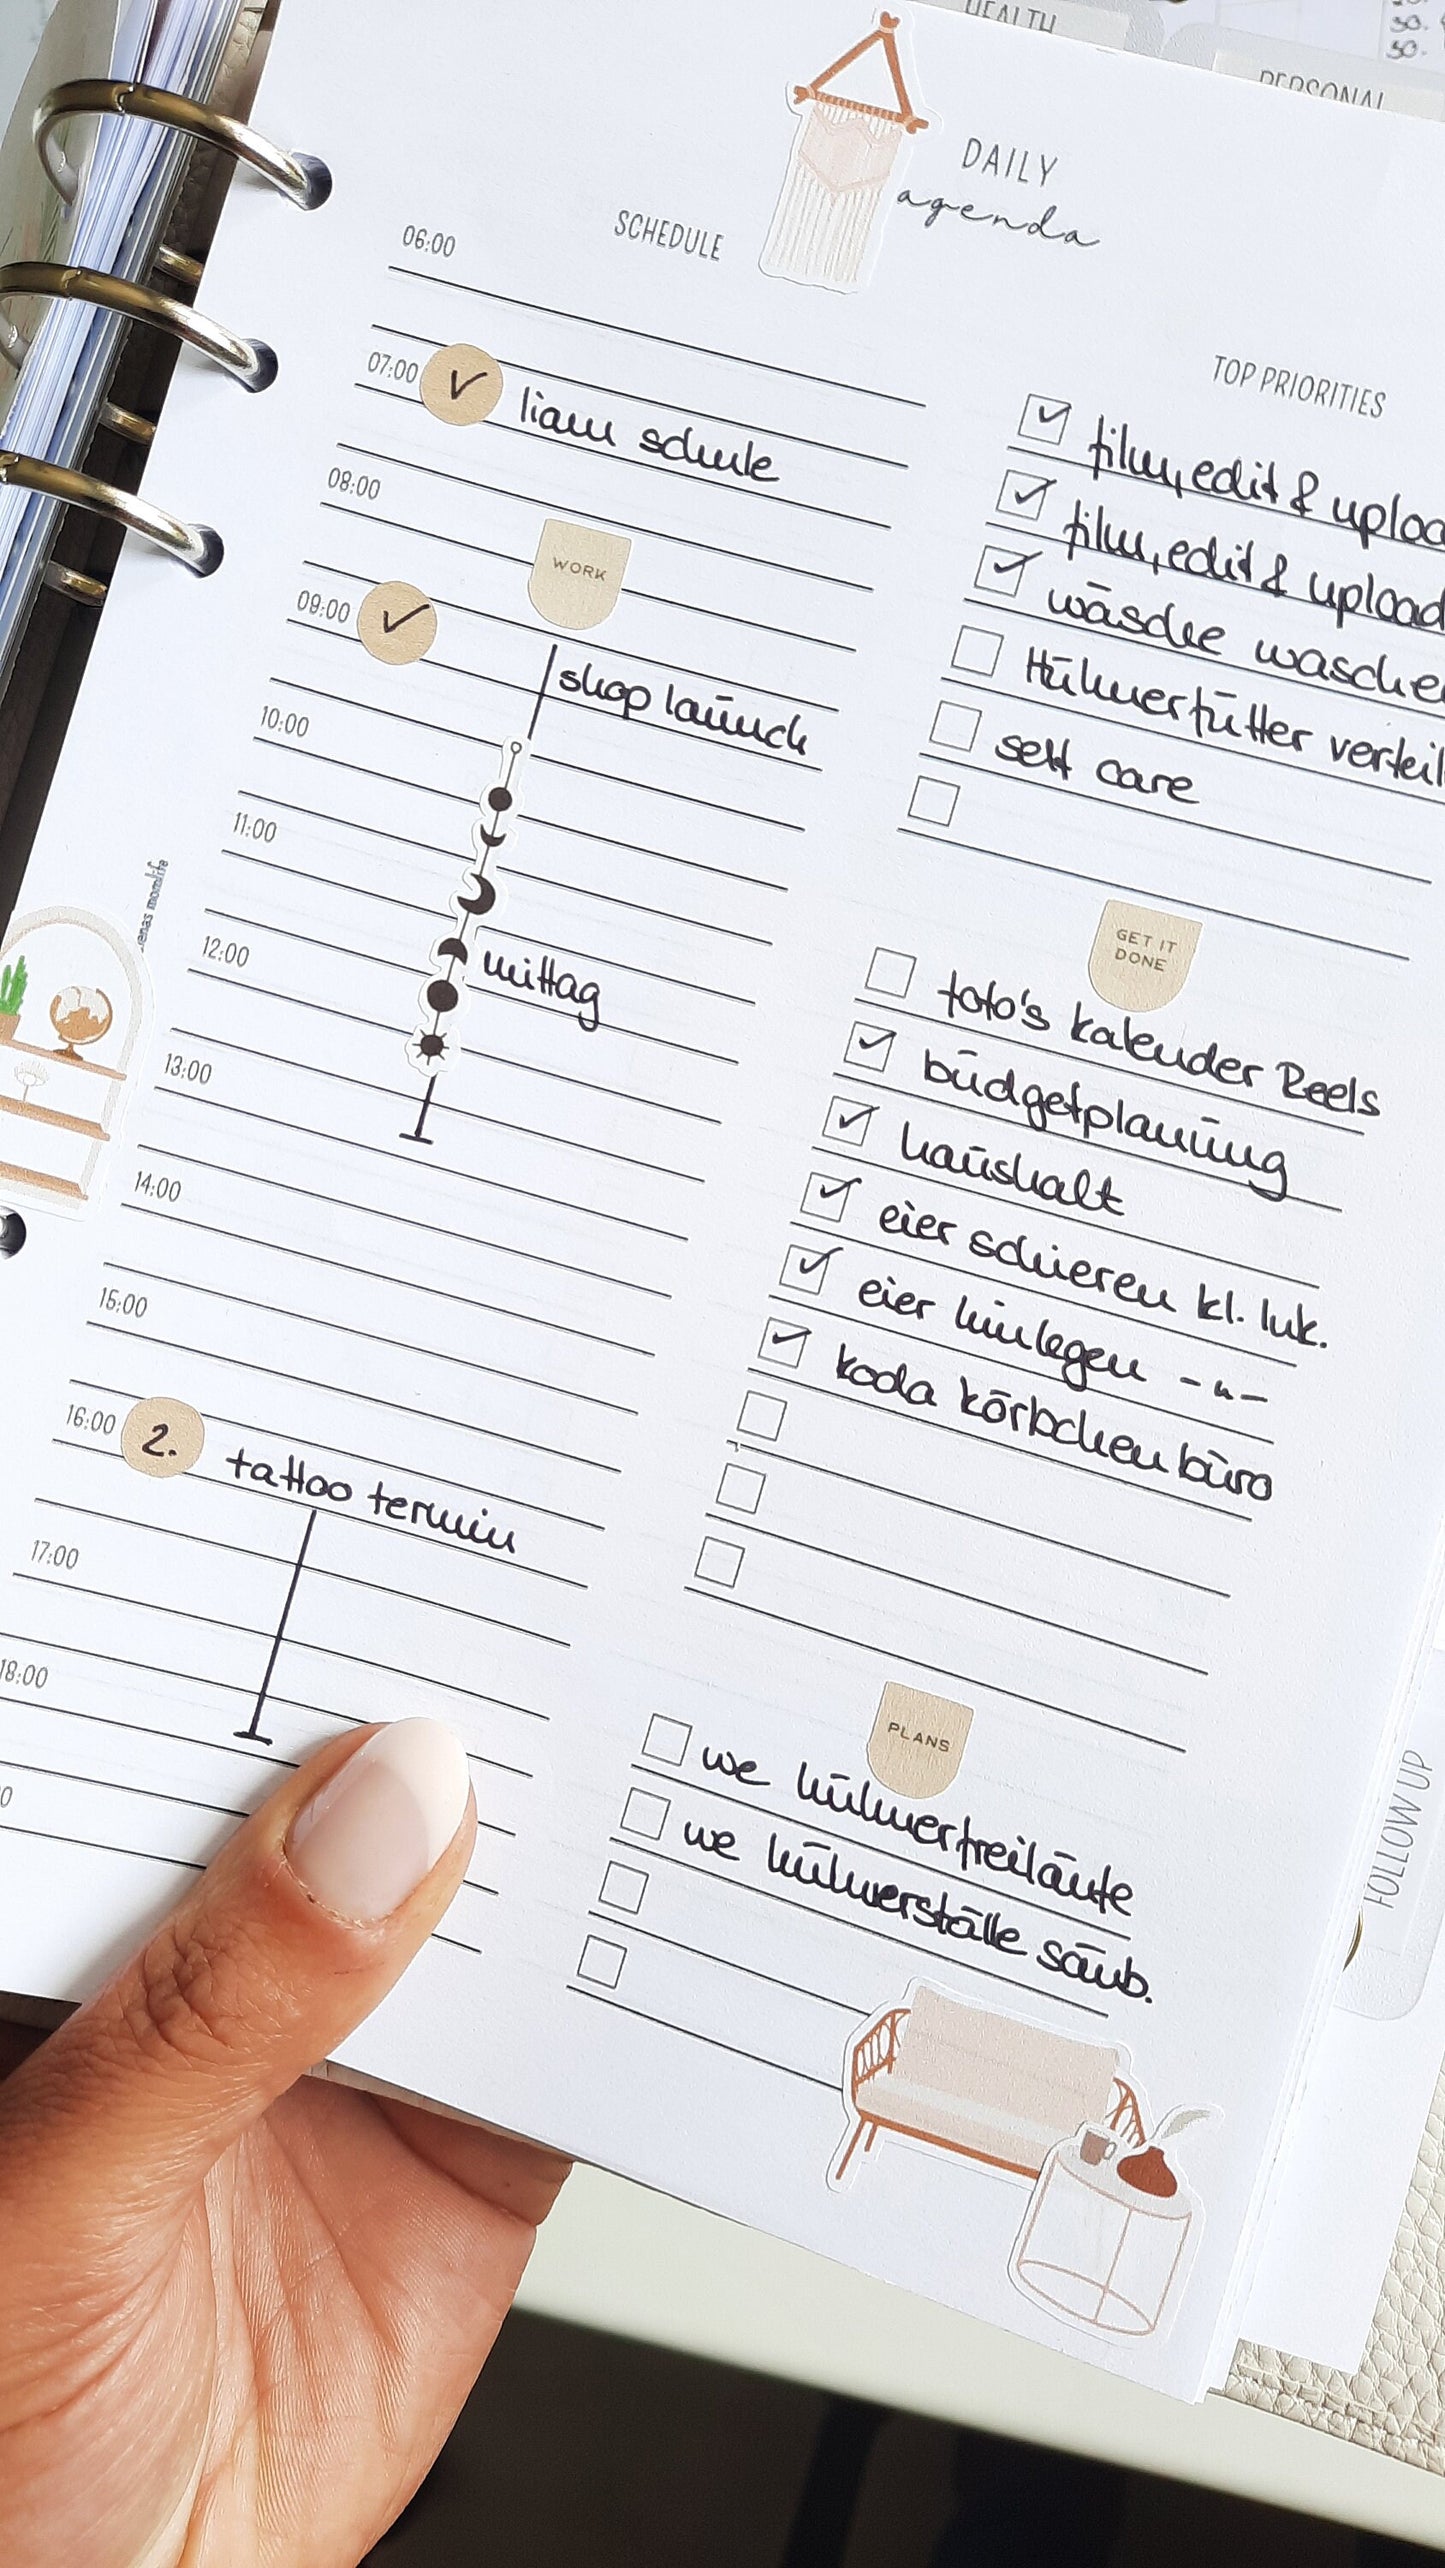 HEALTH
PERSONAL
30.
30.
DAILY
agenda
SCHEDULE
06:00
07:00
liam schule
08:00
WORK
09:00
shop launch
10:00
11:00
12:00
mittag
13:00
14:00
15:00
16:00
2.
tattoo termin
17:00
18:00
TOP PRIORITIES
film, edit & uploa
film, edit & upload
wäsche wasche
Hühnerfutter verteil
self care
GET IT
DONE
toto's kalender Reels
budgetplanung
haushalt
eier schieren kl. luk.
eier hinlegen -"-
koda körbchen büro
PLANS
we hühnerfreiläufe
we hühnerställe säub.
FOLLOW UP
enas momlife